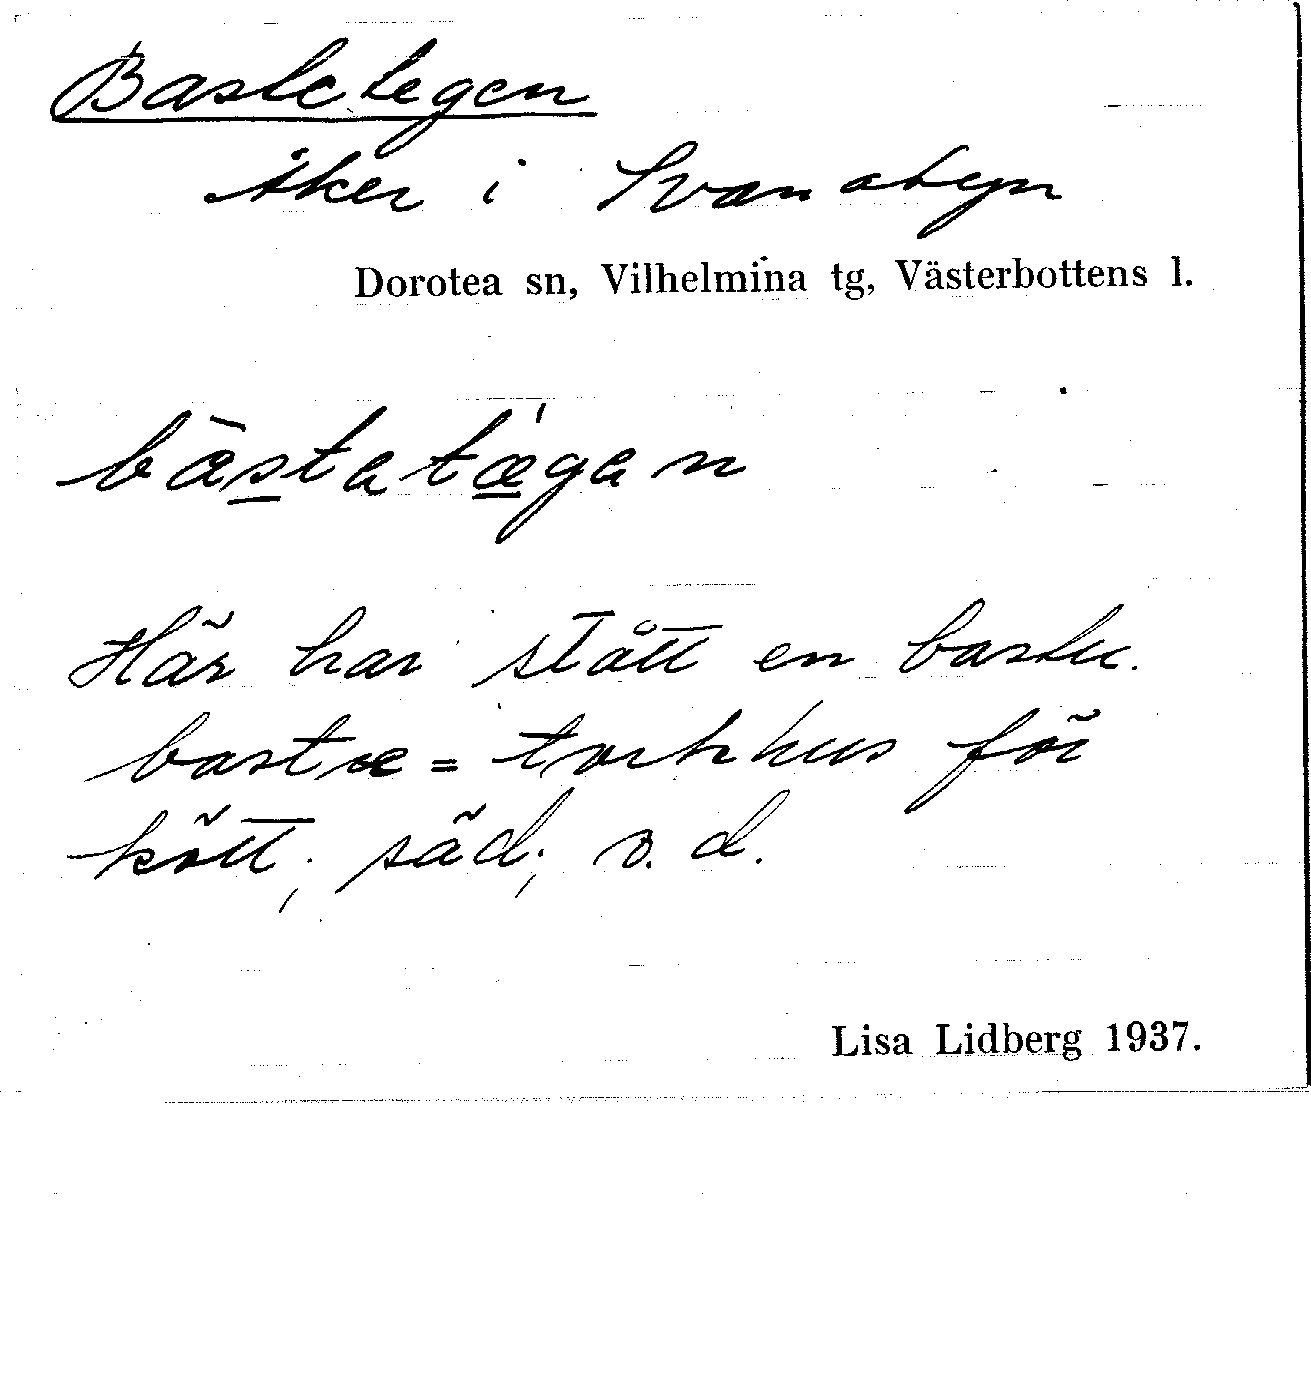 Bastetegen
Åker i Svanabyn
Dorotea sn, Vilhelmina tg, Västerbottens l.
bàstatæ̀gan
Här har stått en bastu.
bastæ = torkhus för
kött, säd, o. d.
Lisa Lidberg 1937.